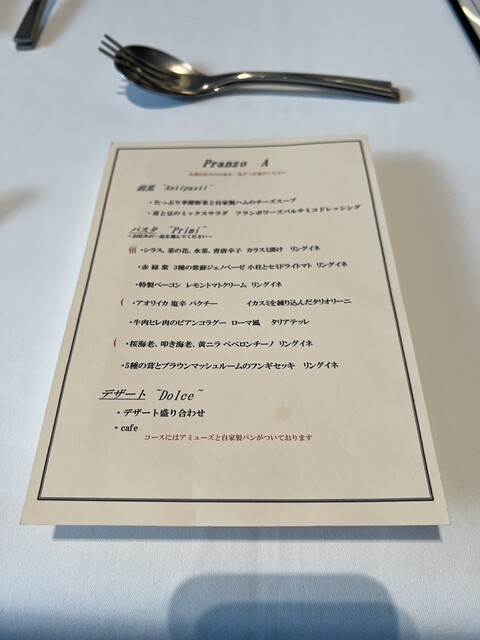 Pranzo A
前菜 ~Antipasti~
・たっぷり季節野菜と自家製ハムのチーズスープ
・茸と豆のミックスサラダ フランボワーズバルサミコドレッシング
パスタ ~Primi~
~お好みの一品を選んでください~
・シラス、菜の花、水菜、青唐辛子 カラスミ掛け リングイネ
・赤 緑 紫 3種の紫蘇ジェノベーゼ 小柱とセミドライトマト リングイネ
・特製ベーコン レモントマトクリーム リングイネ
・アオリイカ 塩辛 パクチー イカスミを練り込んだタリオリーニ
・牛肉ヒレ肉のビアンコラグー ローマ風 タリアテッレ
・桜海老、叩き海老、黄ニラ ペペロンチーノ リングイネ
・5種の茸とブラウンマッシュルームのフンギセッキ リングイネ
デザート ~Dolce~
・デザート盛り合わせ
・cafe
コースにはアミューズと自家製パンがついております